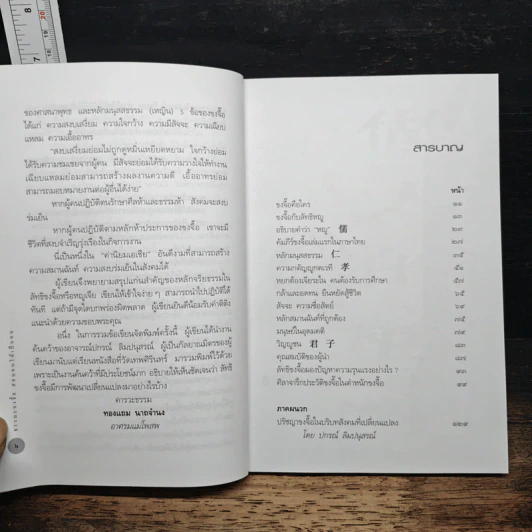 ของศาสนาพุทธ และหลักมนุสสธรรม (เหญิน) 5 ข้อของขงจื๊อ
ได้แก่ ความสงบเสงี่ยม ความใจกว้าง ความมีสัจจะ ความเฉียบ
แหลม ความเอื้ออาทร
"สงบเสงี่ยมย่อมไม่ถูกดูหมิ่นเหยียดหยาม ใจกว้างย่อม
ได้รับความชมเชยจากผู้คน มีสัจจะย่อมได้รับความวางใจให้ทำงาน
เฉียบแหลมย่อมสามารถสร้างผลงานความดี เอื้ออาทรย่อม
สามารถมอบหมายงานต่อผู้อื่นได้ง่าย"
หากผู้คนปฏิบัติตนรักษาศีลห้าและธรรมห้า สังคมจะสงบ
ร่มเย็น
หากผู้คนปฏิบัติตามหลักห้าประการของขงจื๊อ เขาจะมี
ชีวิตที่สงบจำเริญรุ่งเรืองในกิจการงาน
นี่เป็นหนึ่งใน "ค่านิยมเอเชีย" อันดีงามที่สามารถสร้าง
ความสมานฉันท์ ความสงบร่มเย็นในสังคมได้
ผู้เขียนจึงพยายามสรุปแก่นสำคัญของหลักจริยธรรมใน
ลัทธิขงจื๊อหรือหญูเจีย เขียนให้เข้าใจง่าย ๆ สามารถนำไปปฏิบัติได้
ทันที แต่ถ้ามีจุดใดบกพร่องผิดพลาด ผู้เขียนยินดีน้อมรับคำติติง
แนะนำด้วยความขอบพระคุณ
อนึ่ง ในการรวมข้อเขียนจัดพิมพ์ครั้งนี้ ผู้เขียนได้นำงาน
ค้นคว้าของอาจารย์ปกรณ์ ลิมปนุสรณ์ ผู้เป็นกัลยาณมิตรของผู้
เขียนมานับแต่เรียนหนังสือที่วัดเทพศิรินทร์ มารวมพิมพ์ไว้ด้วย
เพราะเป็นงานค้นคว้าที่มีประโยชน์มาก อธิบายให้เห็นชัดเจนว่า ลัทธิ
ขงจื๊อมีการพัฒนาเปลี่ยนแปลงมาอย่างไรบ้าง
คารวะธรรม
ทองแถม นาถจำนง
อาศรมแมโพสพ
สารบาญ
หน้า
ขงจื๊อคือใคร ๑๑
ขงจื๊อกับลัทธิหญู ๑๓
อธิบายคำว่า "หญู" 儒 ๒๓
คัมภีร์ขงจื๊อเล่มแรกในภาษาไทย ๒๗
หลักมนุสสธรรม 仁 ๓๕
ความกตัญญูกตเวที 孝 ๕๑
หยกต้องเจียระไน คนต้องรับการศึกษา ๕๗
กล้าและอดทน ยืนหยัดสู้ชีวิต ๖๕
สัจจะ ความซื่อสัตย์ ๖๙
หลักสมานฉันท์ที่ถูกต้อง ๗๕
มนุษย์ในอุดมคติ ๗๙
วิญญูชน 君子 ๘๓
คุณสมบัติของผู้นำ ๘๗
ลัทธิขงจื๊อมองปัญหาความรุนแรงอย่างไร ? ๙๓
ศิลาจารึกประวัติขงจื๊อในตำหนักขงจื๊อ ๙๙
ภาคผนวก
ปรัชญาขงจื๊อในบริบทสังคมที่เปลี่ยนแปลง ๑๒๙
โดย ปกรณ์ ลิมปนุสรณ์